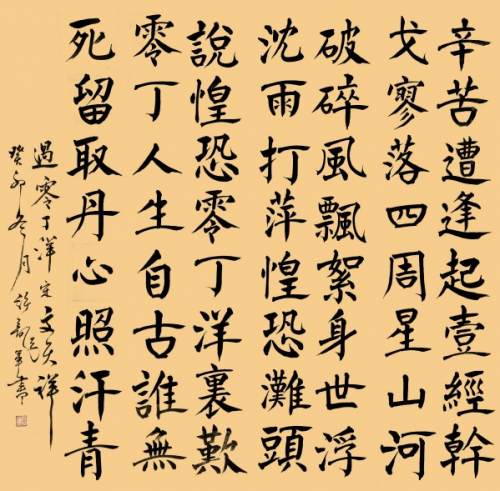 辛苦遭逢起壹經幹
戈寥落四周星山河
破碎風飄絮身世浮
沈雨打萍惶恐灘頭
說惶恐零丁洋裏歎
零丁人生自古誰無
死留取丹心照汗青
過零丁洋宋文天祥
癸卯冬月書